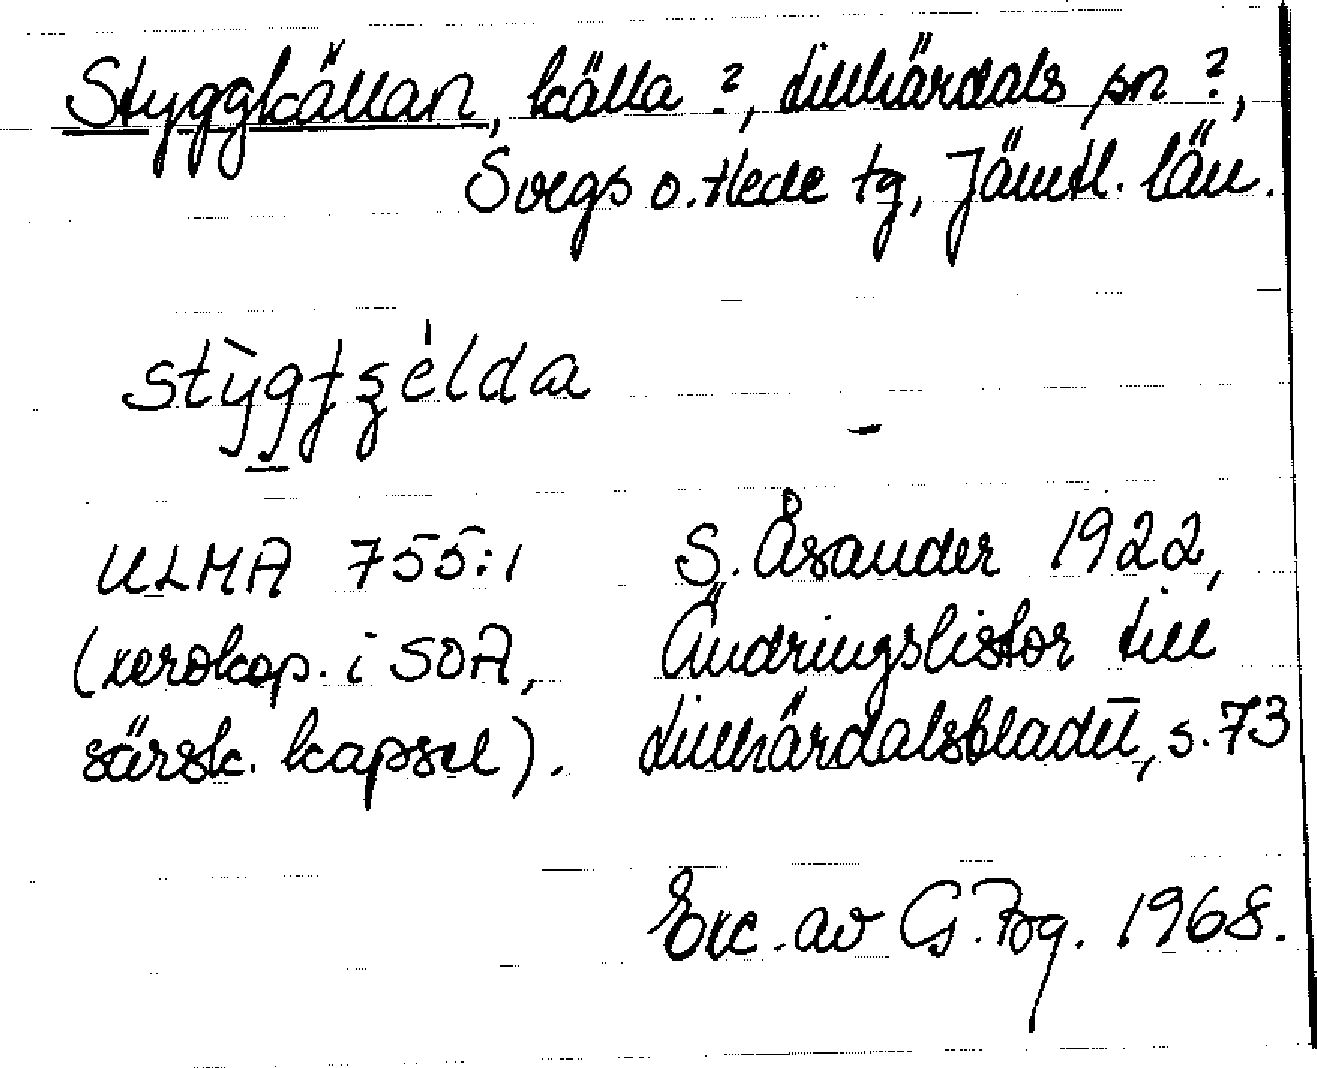 Styggkällan, källa ?, Lillhärdals sn ?,
Svegs o. Hede tg, Jämtl. län.
stỳgtʂélda
ULMA 755:1
(xerokop. i SOA,
särsk. kapsel).
S. Åsander 1922,
Ändringslistor till
Lillhärdalsbladet, s. 73
Exc. av G. Fbg. 1968.